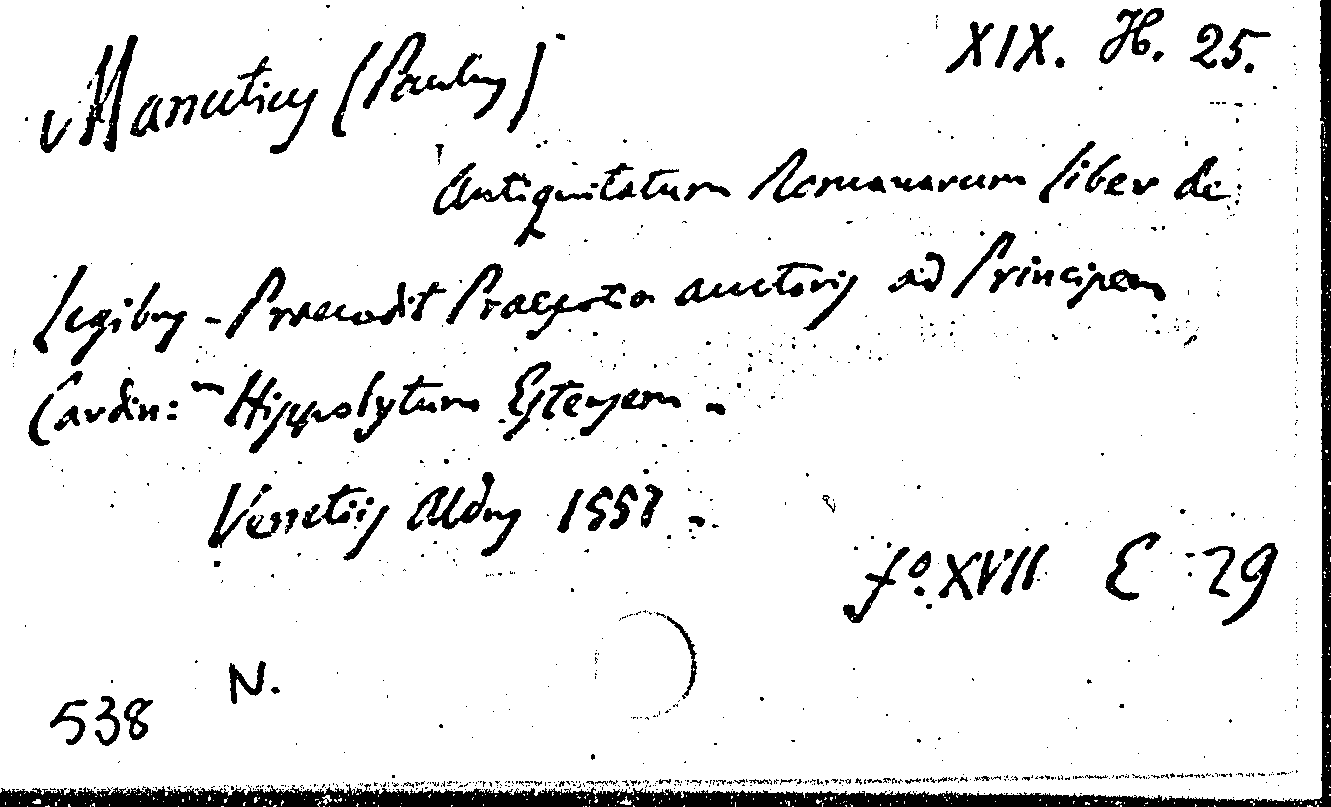 XIX. H. 25.
Manutius (Paulus)
Antiquitatum Romanarum liber de
Legibus - Praecedit Praefatio auctoris ad Principem
Cardin:m Hippolytum Estensem.
Venetiis Aldus 1557.
fo. XVII E 29
N.
538